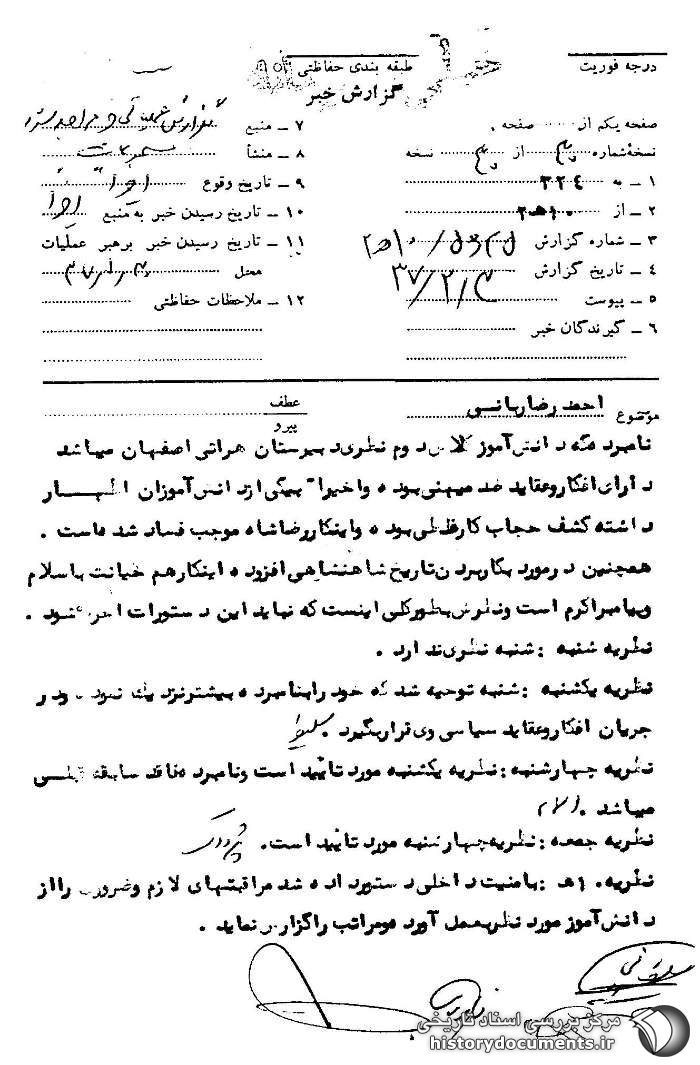 درجه فوریت
طبقه بندی حفاظتی
گزارش خبر
صفحه یکم از صفحه
نسخهٔ شماره از نسخه
۱ ـ به ۳۲۴
۲ ـ از ۱۰ه۲
۳ ـ شماره گزارش
۴ ـ تاریخ گزارش ۳۷/۲/۳
۵ ـ پیوست
۶ ـ گیرندگان خبر
۷ ـ منبع
۸ ـ منشأ
۹ ـ تاریخ وقوع
۱۰ ـ تاریخ رسیدن خبر به منبع
۱۱ ـ تاریخ رسیدن خبر برهبر عملیات
محل
۱۲ ـ ملاحظات حفاظتی
موضوع احمد رضا
عطف
پیرو
نامبرده که دانش آموز کلاس دوم نظری دبیرستان هراتی اصفهان میباشد
دارای افکار و عقاید ضد میهنی بوده و اخیرا" بیکی از دانش آموزان اظهار
داشته کشف حجاب کار غلطی بوده و اینکار رضا شاه موجب فساد شده است .
همچنین در مورد بکار بردن تاریخ شاهنشاهی افزوده اینکار هم خیانت باسلام
و پیامبر اکرم است و نظرش بطور کلی اینست که نباید این دستورات اجرا شود .
نظریه شنبه : شنبه نظری ندارد .
نظریه یکشنبه : شنبه توجیه شد که خود را بنامبرده بیشتر نزدیک نموده و در
جریان افکار و عقاید سیاسی وی قرار بگیرد .
نظریه چهارشنبه : نظریه یکشنبه مورد تائید است و نامبرده فاقد سابقه قبلی
میباشد .
نظریه جمعه : نظریه چهارشنبه مورد تائید است.
نظریه ۱۰ه : بامنیت داخلی دستور داده شد مراقبتهای لازم و ضروری را از
دانش آموز مورد نظر بعمل آورد و مراتب را گزارش نماید .
مرکز بررسی اسناد تاریخی
historydocuments.ir